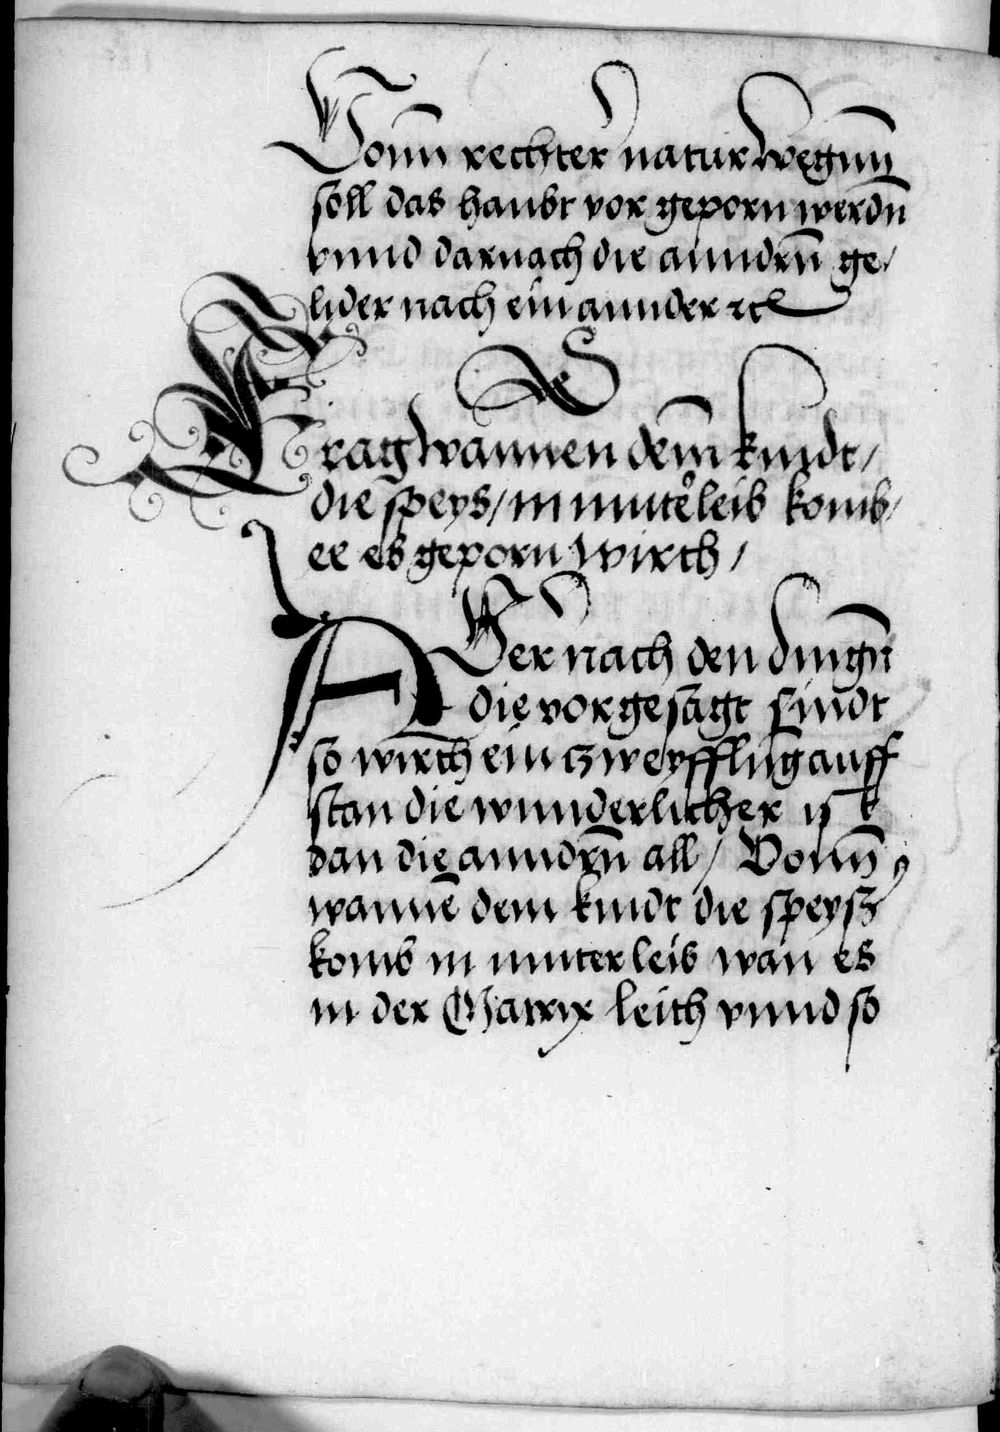 Vonn rechter natur wegnn
soll das haubt vor geporn werdn̄
vnnd darnach die anndrn̄ ge/
lider nach ein annder ꝛc
Frag wannen dem̄ kindt /
die speys / in mutēr leib komb /
ee es geporn wirth /
ABer nach den dingn̄
die vorgesagt sindt
so wirth ein czweyfflung auff
stan die wunderlicher ist
dan die anndrn̄ all / Vonn̄
wannē dem kindt die speysz
komb in muter leib wan es
in der Matrix leith vnnd so